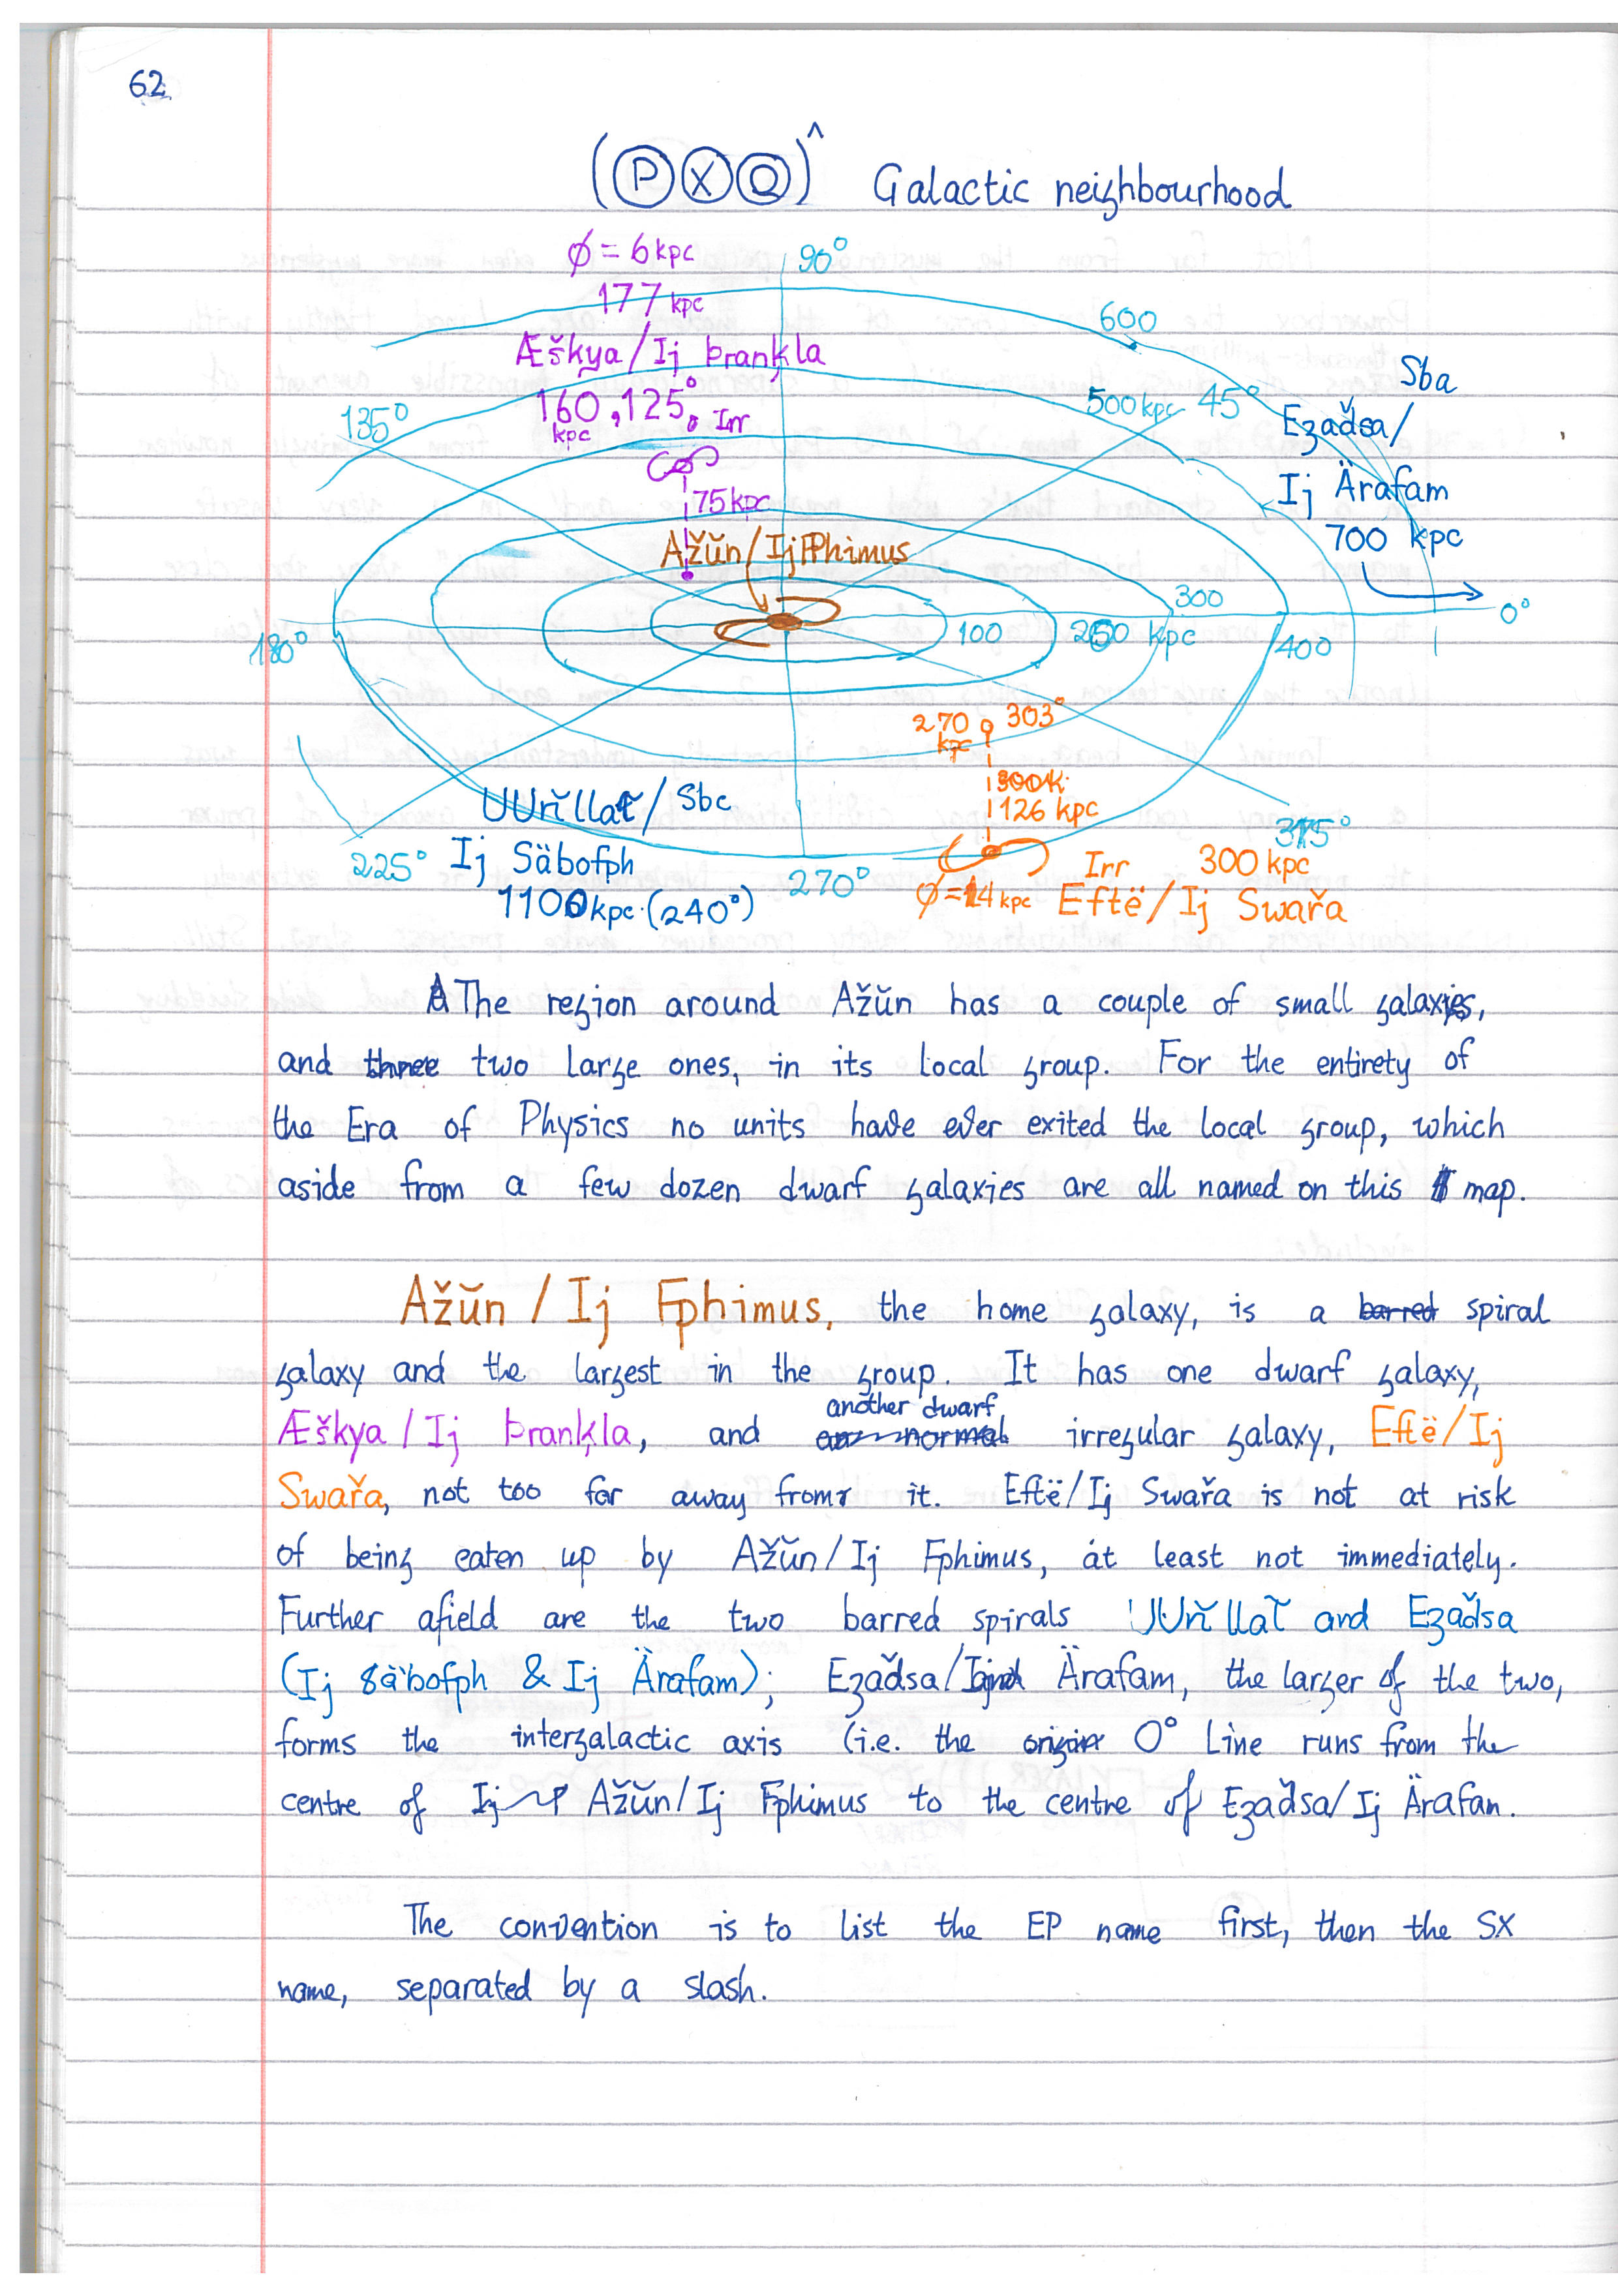 62
(PXQ)^ Galactic neighbourhood
ø = 6 kpc
90°
177 kpc
600
Æškya / Ij Þranķla
Sba
135°
160 kpc, 125°, Irr
500 kpc
45°
Ezaďsa /
Ij Ärafam
75 kpc
700 kpc
Ažŭn / Ij Fphimus
300
0°
180°
100
200 kpc
400
270 kpc
303°
UUřllať / Sbc
126 kpc
315°
225°
Ij Säbofph
270°
Irr
300 kpc
1100 kpc (240°)
ø = 14 kpc
Eftë / Ij Swařa
The region around Ažŭn has a couple of small galaxies,
and three two large ones, in its local group. For the entirety of
the Era of Physics no units have ever exited the local group, which
aside from a few dozen dwarf galaxies are all named on this map.
Ažŭn / Ij Fphimus, the home galaxy, is a barred spiral
galaxy and the largest in the group. It has one dwarf galaxy,
another dwarf
Æškya / Ij Þranķla, and normal irregular galaxy, Eftë / Ij
Swařa, not too far away from it. Eftë/Ij Swařa is not at risk
of being eaten up by Ažŭn/Ij Fphimus, at least not immediately.
Further afield are the two barred spirals UUřllať and Ezaďsa
(Ij Säbofph & Ij Ärafam); Ezaďsa/Ij Ärafam, the larger of the two,
forms the intergalactic axis (i.e. the origin 0° line runs from the
centre of Ij Ažŭn/Ij Fphimus to the centre of Ezaďsa/Ij Ärafan.
The convention is to list the EP name first, then the SX
name, separated by a slash.